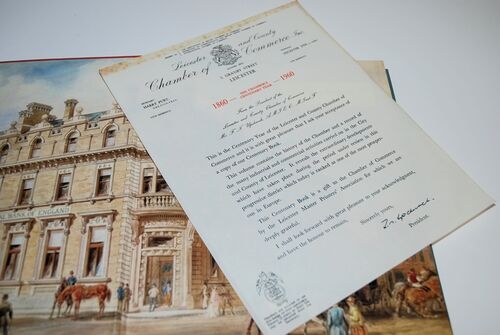 Leicester and County
Chamber of Commerce Inc.
GRANBY STREET
LEICESTER
1860 THE CHAMBER'S CENTENARY YEAR 1960
From the President of the
Leicester and County Chamber of Commerce
This is the Centenary Year of the Leicester and County Chamber of
Commerce and it is with great pleasure that I ask your acceptance of
a copy of our Centenary Book.
This volume contains the history of the Chamber and a record of
the many industrial and commercial activities carried on in the City
and County of Leicester. It reveals the extraordinary development
which has taken place during the period under review in this
progressive district which today is ranked as one of the most prosper-
ous in Europe.
This Centenary Book is a gift to the Chamber of Commerce
by the Leicester Master Printers' Association for which we are
deeply grateful.
I shall look forward with great pleasure to your acknowledgment,
and have the honour to remain,
Sincerely yours,
President.
BANK OF ENGLAND